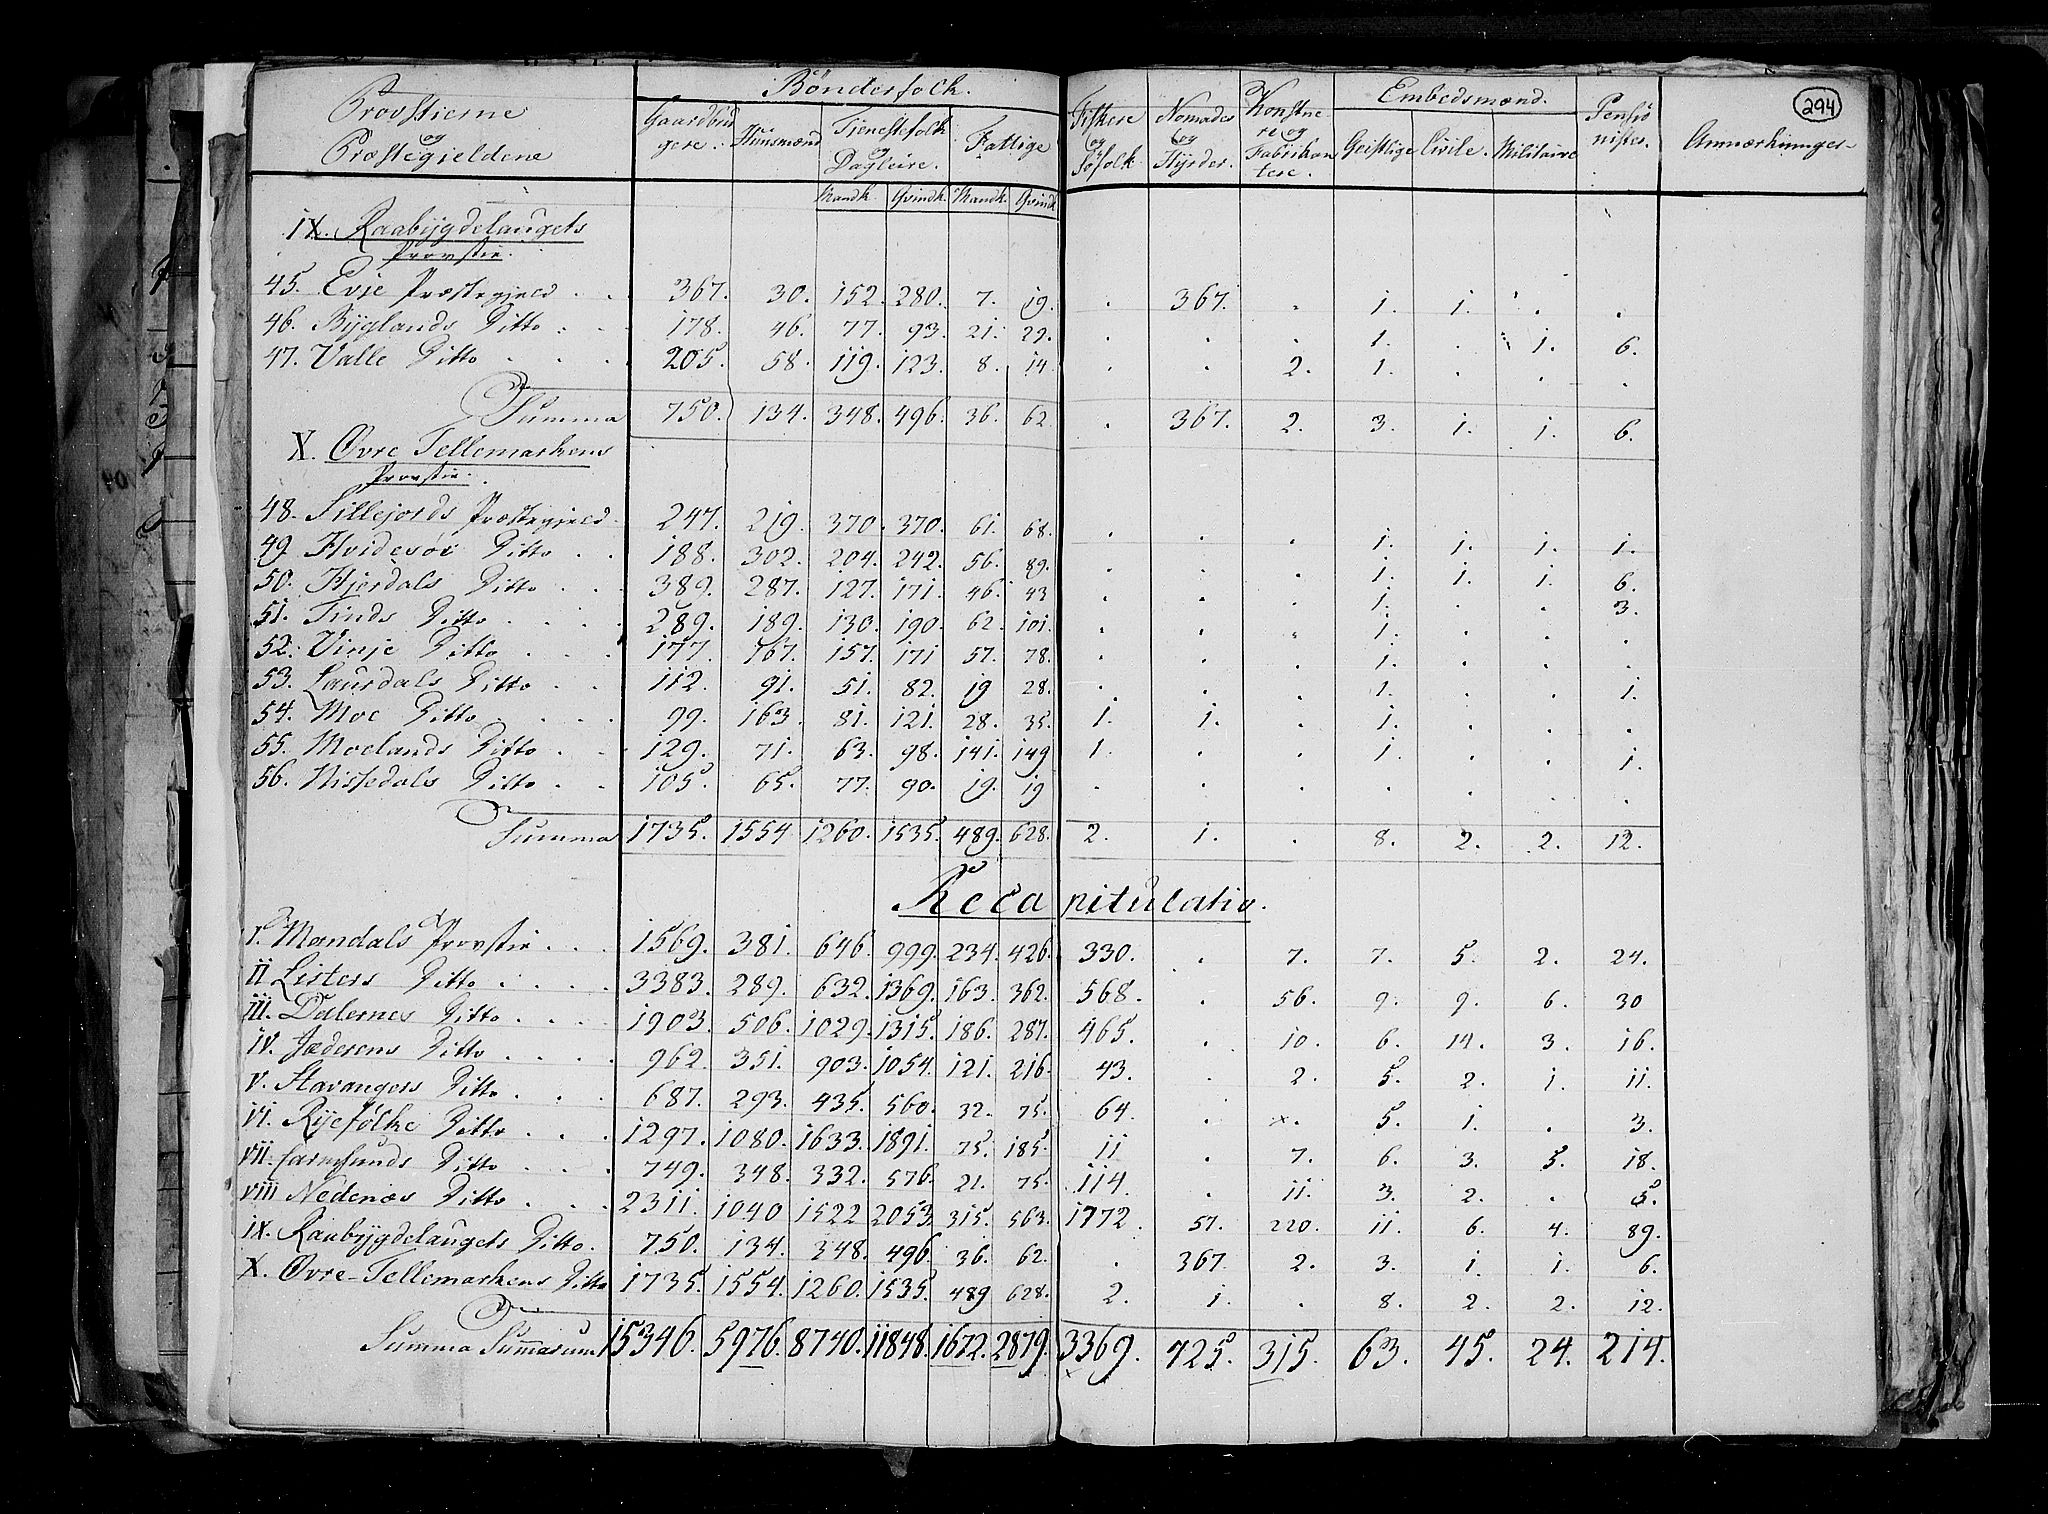 294
Provstierne og Præstegjeldene | Bønderfolk. | Fiskere og Søfolk | Nomades og Hyrder. | Konstnere og Fabrikantere. | Embedsmænd. | Pensionister. | Anmærkninger
Gaardbrugere. | Huusmænd | Tienestefolk og Dagleiere. | Fattige | Geistlige | Civile. | Militaire
Mandk. | Qvindk. | Mandk. | Qvindk
IX. Raabÿgdelaugets
Provstie.
45. Evje Præstegjeld . . 367. 30. 152. 280. 7. 19. . 367. . 1. 1. . .
46. Bÿglands Ditto . . 178. 46. 77. 93. 21. 29. . . . 1. . 1. 6.
47. Valle Ditto . . . 205. 58. 119. 123. 8. 14. . . 2. 1. . . .
Summa 750. 134. 348. 496. 36. 62. . 367. 2. 3. 1. 1. 6.
X. Øvre Tellemarkens
Provstie.
48. Sillejords Præstegjeld. 247. 219. 370. 370. 61. 68. . . . 1. 1. 1. 1.
49 Hvidesøe Ditto . . 188. 302. 204. 242. 56. 89. . . . 1. 1. 1. 6.
50. Hjerdals Ditto . . . 389. 287. 127. 171. 46. 43 . . . 1. . . 3.
51. Tinds Ditto . . . . 289. 189. 130. 190. 62. 101. . . . 1. . . .
52. Vinje Ditto . . . 177. 167. 157. 171 57. 78. . . . 1. . . .
53. Laurdals Ditto . . 112. 91. 51. 82. 19 28. . . . 1. . . 1.
54. Moe Ditto . . . . 99. 163 81. 121. 28. 35. 1. 1. . 1. . . .
55. Moelands Ditto . . 129. 71. 63. 98. 141. 149 1. . . 1. . . 1.
56. Nissedals Ditto . . 105. 65. 77. 90. 19. 19 . . . . . . .
Summa 1735. 1554 1260. 1535. 489. 628. 2. 1. . 8. 2. 2. 12.
Recapitulatio.
I. Mandals Provstie . . . 1569. 381. 646. 999. 234. 426. 330. . 7. 7. 5. 2. 24.
II Listers Ditto . . . . 3383. 289. 632. 1369. 163. 362. 568. . 56. 9. 9. 6. 30
III. Dalernes Ditto . . . . 1903. 506. 1029. 1315. 186. 287. 465. . 10. 6. 14. 3. 16.
IV. Jæderens Ditto . . . . 962. 351. 903. 1054. 121. 216. 43. . 2. 5. 2. 1. 11.
V. Stavangers Ditto . . . 687. 293. 435. 560. 32. 75. 64. . x. 5. 1. . 3.
VI. Rÿefölke Ditto . . . 1297. 1080. 1633. 1891. 75. 185. 11 . 7. 6. 3. 5. 18.
VII. Carmsunds Ditto . . . 749. 348. 332. 576. 21. 75. 114. . 11. 3. 2. . 5.
VIII Nedenæs Ditto . . . 2311. 1040 1522 2053 315. 563. 1772. 57. 220. 11. 6. 4. 89.
IX. Raabÿgdelaugets Ditto. 750. 134. 348. 496. 36. 62. . 367. 2. 3. 1. 1. 6.
X. Øvre-Tellemarkens Ditto 1735. 1554. 1260. 1535. 489 628. 2. 1. . 8. 2. 2. 12.
Summa Summarum 15346. 5976. 8740. 11848. 1672. 2879. 3369. 725. 315. 63. 45. 24. 214.